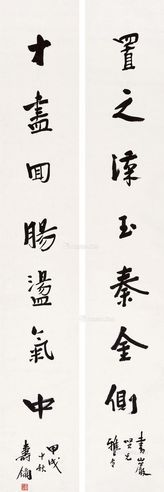 置之漢玉秦金側
書巖
吾兄
雅令
才盡回腸盪氣中
甲戌
中秋
壽